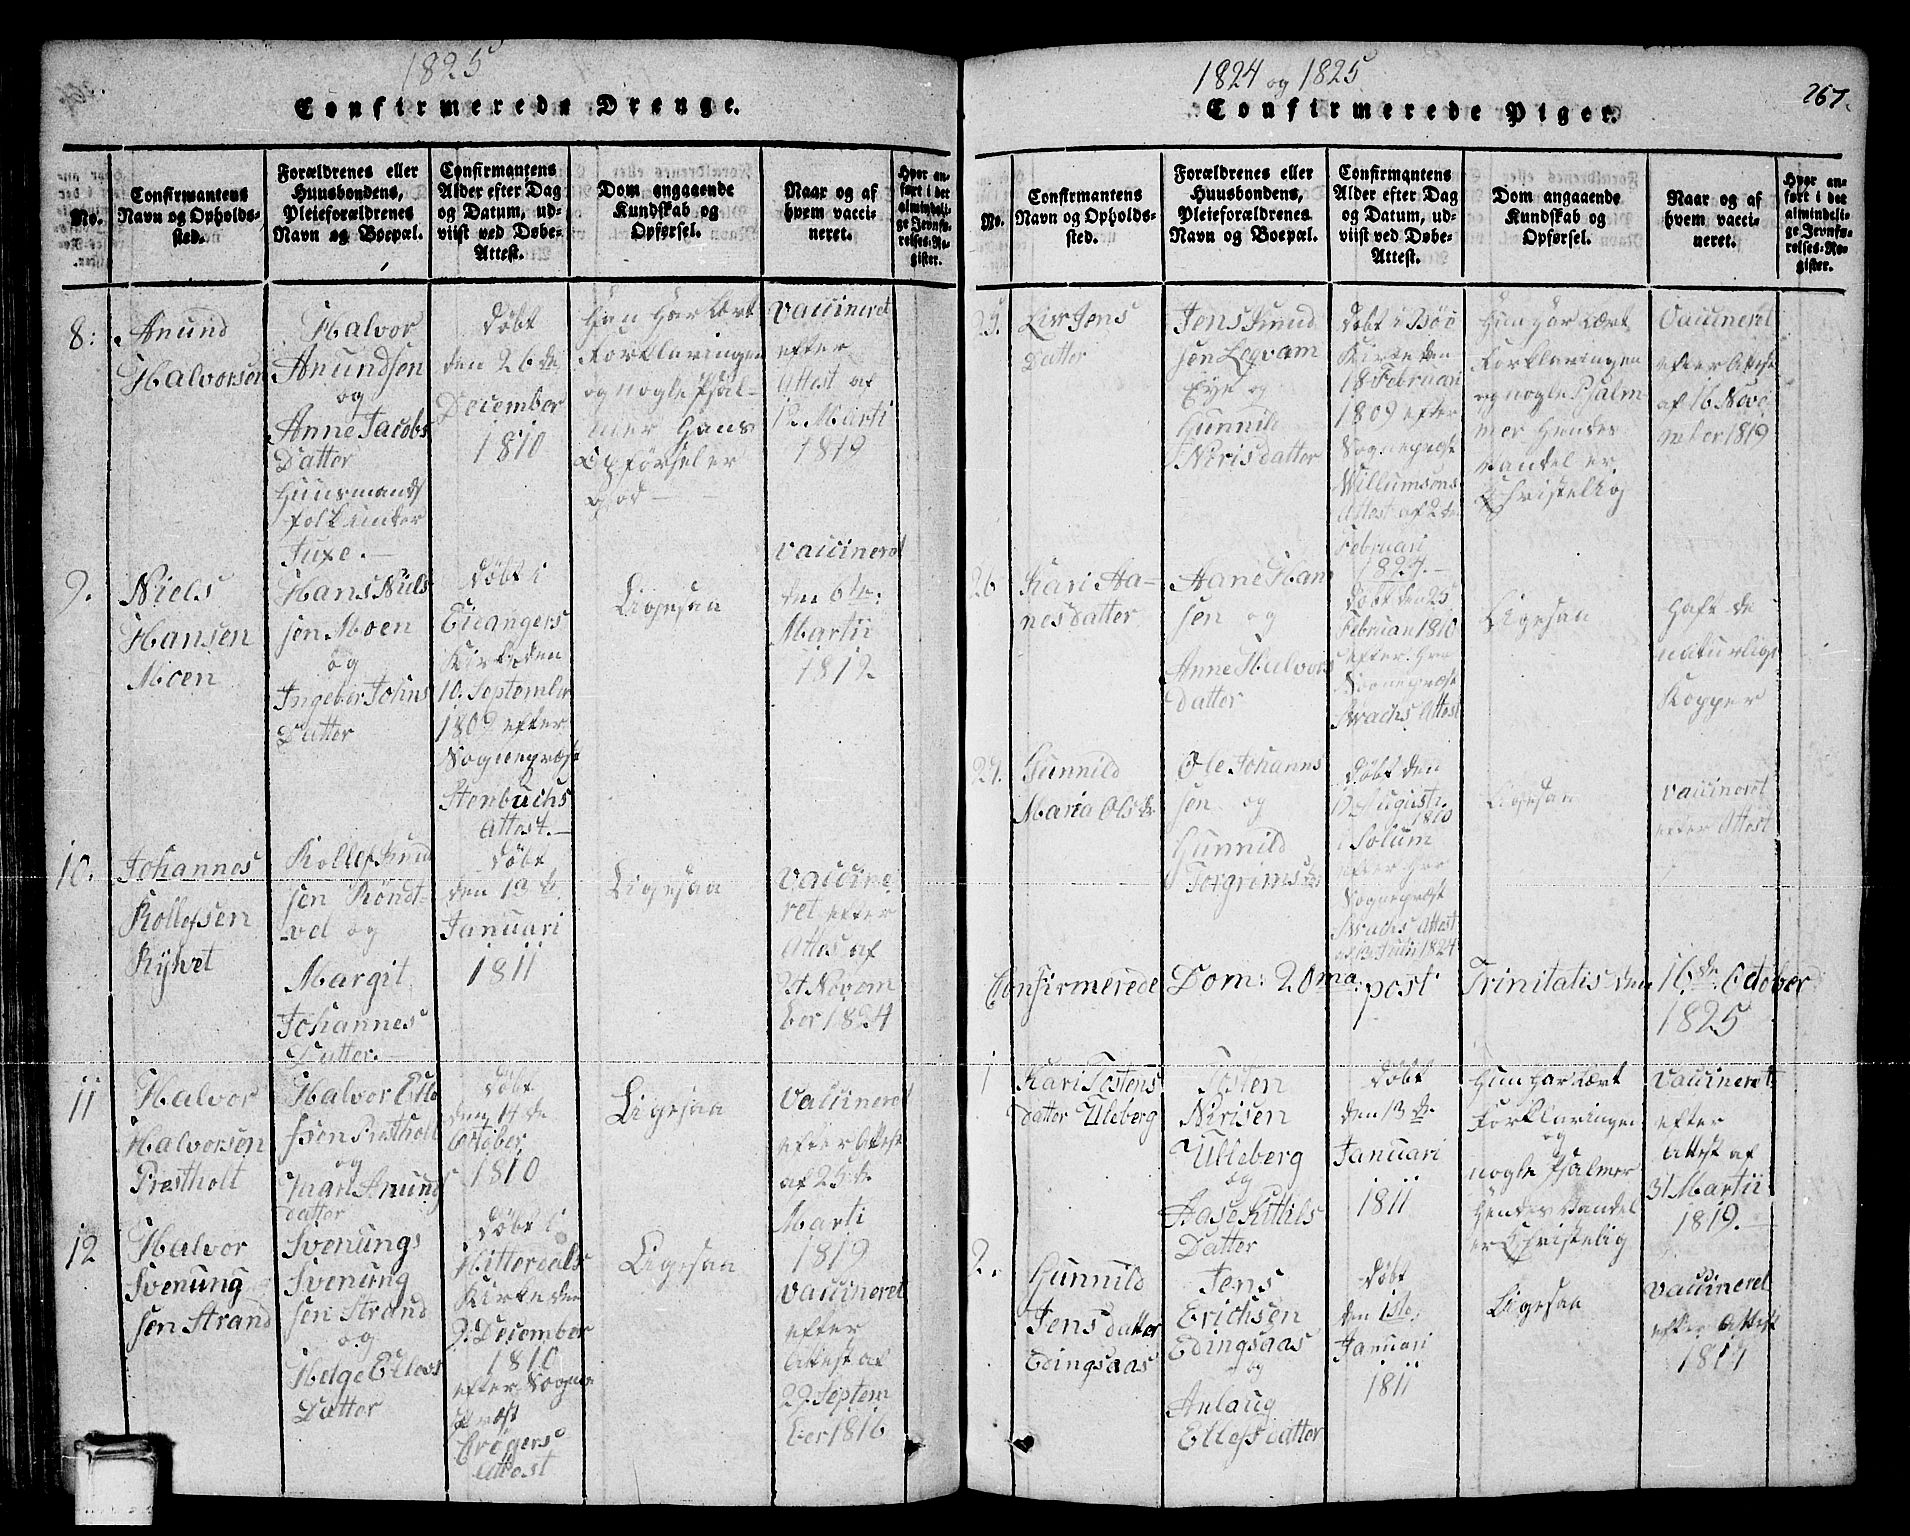 1825
Confirmerede Drenge.
No.
Confirmantens
Navn og Opholds-
sted.
Forældrenes eller
Huusbondens,
Pleieforældrenes
Navn og Boepæl.
Confirmantens
Alder efter Dag
og Datum, ud-
viist ved Døbe-
Attest.
Dom angaaende
Kundskab og
Opførsel.
Naar og af
hvem vacci-
neret.
Hvor an-
ført i det
almindeli-
ge Jevnfø-
relses-Re-
gister.
8:
Anund
Halvorsen
Halvor
Anundsen
og
Anne Jacobs
Datter
Huusmands
folk under
Tuxe.
døbt
den 26 de
December
1810
Han har Lært
Forklaringen
og nogle Psal-
mer Hans
Opførsel er
god
Vaccineret
efter
Attest af
12 Marti
1819
9.
Niels
Hansen
Moen
Hans Niels
sen Moen
og
Ingebor Johns
Datter
døbt i
Eidangers
Kirke den
10. September
1809 efter
Sognepræst
Stenbuchs
Attest.
Ligesaa
Vaccineret
den 6te
Martii
1819.
10.
Johannes
Rollefsen
Rijhvet
Rollef Knud
sen Röndt-
vel og
Margit
Johannes
Datter.
døbt
den 13 de
Januari
1811
Ligesaa
Vaccine
ret efter
Attes af
24 Novem
ber 1824
11
Halvor
Halvorsen
Prestholt
Halvor Elle
fsen Prestholt
og
Kari Anunds
datter
døbt
den 14 de
October
1810
Ligesaa
Vaccineret
efter Attest
af 25 de
Marti
1819
12
Halvor
Svenung
sen Strand
Svenungs
Svenung
sen Strand
og
Helge Ellevs
Datter
døbt i
Hitterdals
Kirke den
9. December
1810
efter Sogne
Præst
Crøgers
Attest
Ligesaa
Vaccineret
efter
Attest af
29 Septem
ber 1816
1824 og 1825
267.
Confirmerede Piger.
No.
Confirmantens
Navn og Opholds-
sted.
Forældrenes eller
Huusbondens,
Pleieforældrenes
Navn og Boepæl.
Confirmantens
Alder efter Dag
og Datum, ud-
viist ved Døbe-
Attest.
Dom angaaende
Kundskab og
Opførsel.
Naar og af
hvem vacci-
neret.
Hvor an-
ført i det
almindeli-
ge Jevnfø-
relses-Re-
gister.
25.
Liv Jens
Datter
Jens Knud
sen Legvam
Eye og
Gunnild
Nirisdatter
døbt i Bøe
Kirke den
18 Februari
1809 efter
Sognepræst
Willumsens
Attest af 2 de
Februari
1824.
Hun har Lært
Forklaringen
og nogle Psalm
mer Hendes
Vandel er
Christelig
Vaccineret
efter Attest
af 16 Nove
mber 1819
26
Kari Aa-
nesdatter
Aane Han
sen og
Anne Halvors
datter
døbt den 25
Februari 1810
efter Hrr
Sognepræst
Brachs Attest
Ligesaa
Haft de
naturlige
Kopper
27.
Gunnild
Maria Ols dr
Ole Johanns
sen og
Gunnild
Torgrims dtr
døbt den
12 Augusti
1810
i Solum
efter Her
Sognepræst
Brachs Attest
af 13 Julii 1824
Ligesaa
Vaccineret
efter Attest
Confirmerede Dom: 20ma post Trinitatis den 16 de October
1825
1
Kari Tostens
datter Uleberg
Tosten
Nirisen
Ulleberg
og
Aase Kittils
Datter
døbt
den 13 de
Januari
1811
Hun har Lært
Forklaringen
og
nogle Psalmer
Hendes Vandel
er Christelig
Vaccineret
efter
Attest af
31 Martii
1819.
2.
Gunnild
Jensdatter
Edingsaas
Jens
Erichsen
Edingsaas
og
Anlaug
Ellefsdatter
døbt
den 1ste
Januari
1811
Ligesaa
Vaccineret
efter Attest